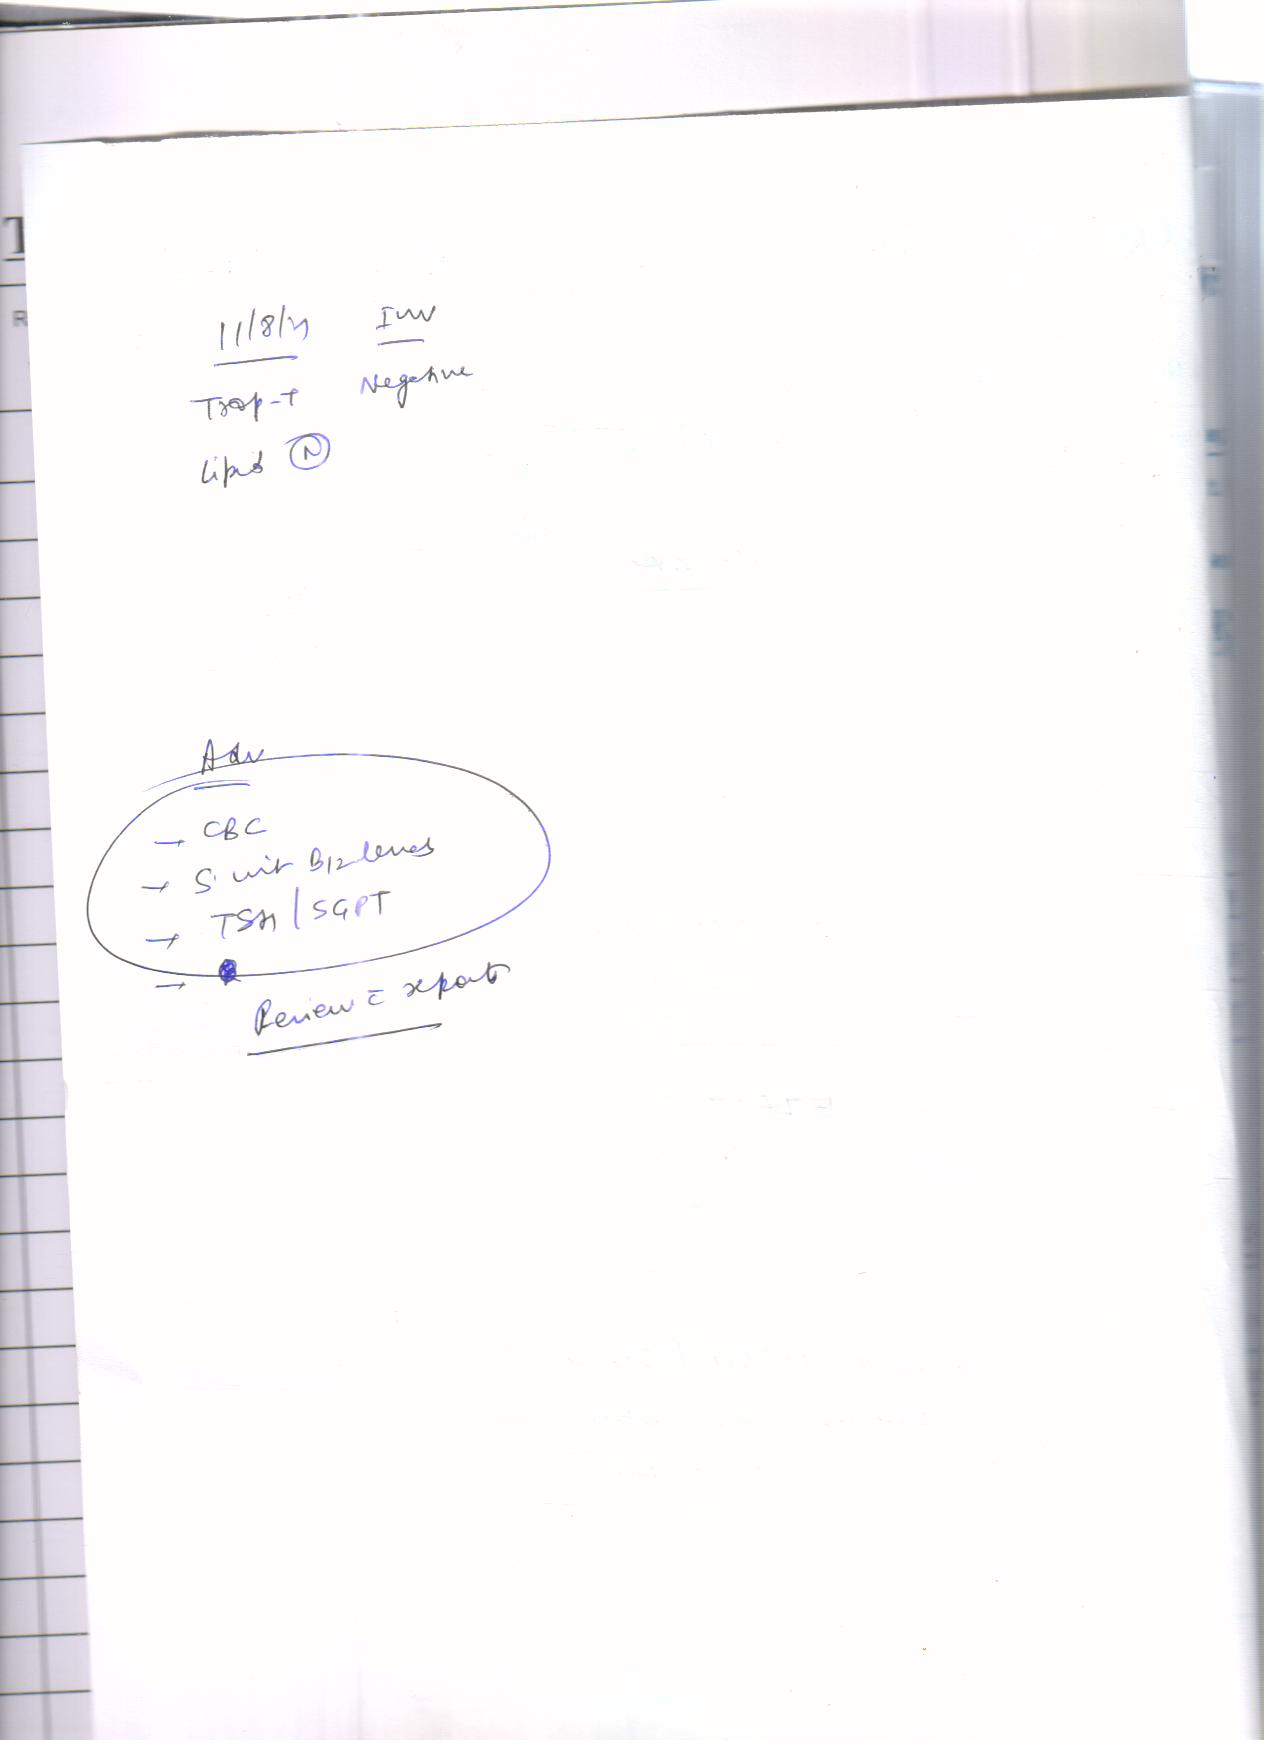 11/8/21 Inv
Trop-T Negative
Lipid (N)
Adv
→ CBC
→ S. vit B12 levels
→ TSH / SGPT
→
Review c̄ reports